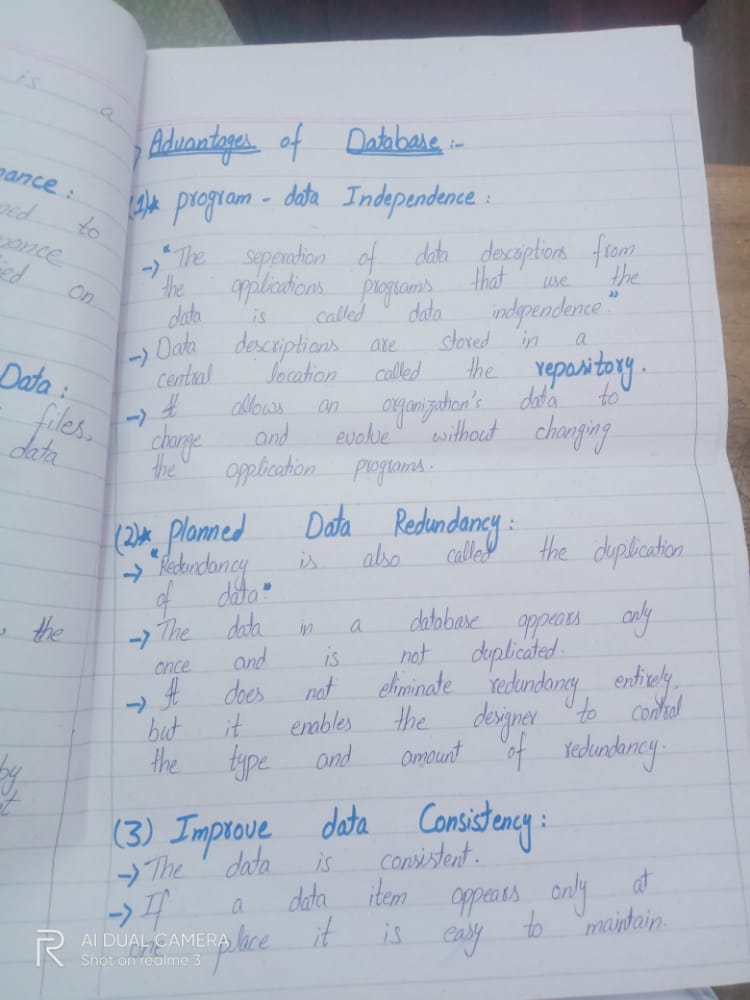 is a
ance:
ned to
nance
ied on
Data:
files,
data
, the
by
t
Advantages of Database:-
(1)* program - data Independence:
→ "The seperation of data descriptions from
the applications programs that use the
data is called data independence."
→ Data descriptions are stored in a
central location called the repository.
→ It allows an organization's data to
change and evolve without changing
the application programs.
(2)* Planned Data Redundancy:
→ "Redundancy is also called the duplication
of data."
→ The data in a database appears only
once and is not duplicated.
→ It does not eliminate redundancy entirely,
but it enables the designer to control
the type and amount of redundancy.
(3) Improve data Consistency:
→ The data is consistent.
→ If a data item appears only at
one place it is easy to maintain.
R AI DUAL CAMERA
Shot on realme 3